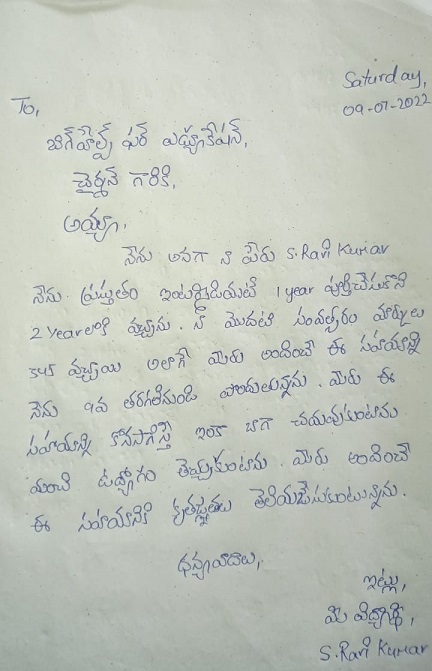 Saturday,
09-07-2022
To,
బిగ్‌హెల్ప్ ఫర్ ఎడ్యూకేషన్,
చైర్మన్ గారికి,
అయ్యా,
నేను అనగా నా పేరు S.Ravi Kumar
నేను ప్రస్తుతం ఇంటర్మీడియట్ 1 year పూర్తిచేసుకొని
2 Year లోకి వచ్చాను. నా మొదటి సంవత్సరం మార్కులు
345 వచ్చాయి అలాగే మీరు అందించే ఈ సహాయాన్ని
నేను 9వ తరగతినుండి పొందుతున్నాను. మీరు ఈ
సహాయాన్ని కొనసాగిస్తే ఇంకా బాగా చదువుకుంటాను
మంచి ఉద్యోగం తెచ్చుకుంటాను. మీరు అందించే
ఈ సహాయానికి కృతజ్ఞతలు తెలియజేసుకుంటున్నాను.
ధన్యవాదాలు,
ఇట్లు,
మీ విద్యార్థి,
S.Ravi Kumar